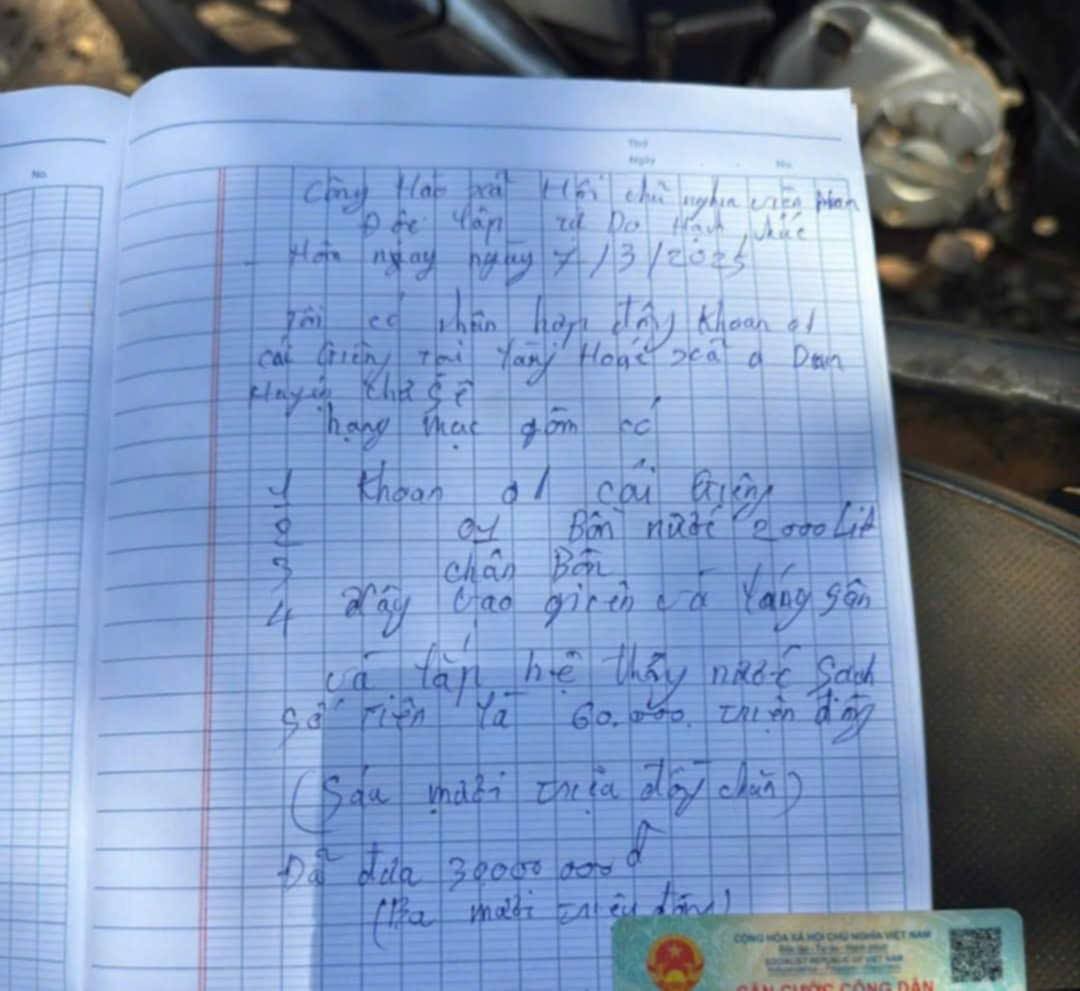 No.
Thứ
Ngày No.
Cộng Hào xã Hôi chủ nghĩa việt Nam
Độc lập tự Do Hạnh phúc
Hôm ngay ngày 7/3/2025
Tôi có nhân hợp đồng khoan 01
cái Giếng Tại lang Hoai xã a Dun
Huyện Chư Sê
hạng mục gồm có
1 Khoan 01 cái Giếng
2 01 Bồn nước 2000 Lit
3 chân Bồn
4 Xây Cao giến và láng sân
và lắp hệ thấy nước Sach
Số Tiền là 60.000. Triện đồng
(Sáu mươi Triệu đồng chẵn)
Đã đưa 30000 000 đ
(Ba mươi Triệu đồng)
CỘNG HÒA XÃ HỘI CHỦ NGHĨA VIỆT NAM
Độc lập - Tự do - Hạnh phúc
SOCIALIST REPUBLIC OF VIET NAM
CĂN CƯỚC CÔNG DÂN